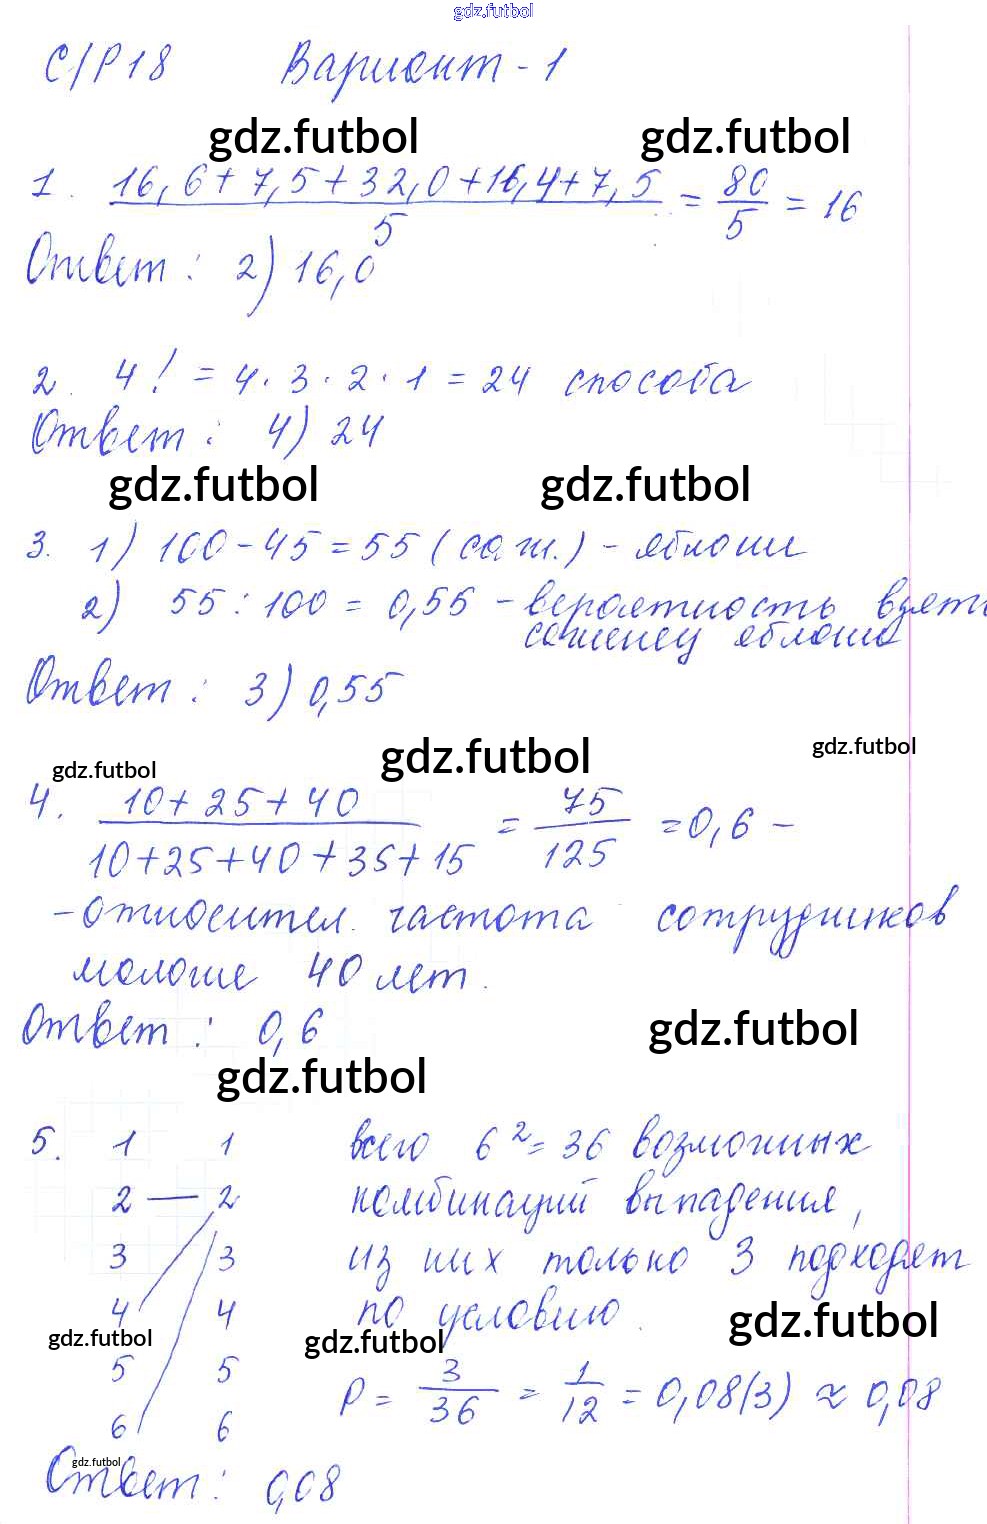 gdz.futbol
С/Р18 Вариант - 1
gdz.futbol gdz.futbol
1. 16,6+7,5+32,0+16,4+7,5 / 5 = 80 / 5 = 16
Ответ: 2) 16,0
2. 4! = 4·3·2·1 = 24 способа
Ответ: 4) 24
gdz.futbol gdz.futbol
3. 1) 100-45=55 (саж.) - яблони
2) 55:100 = 0,55 - вероятность взять
саженец яблони
Ответ: 3) 0,55
gdz.futbol gdz.futbol gdz.futbol
4. 10+25+40 / 10+25+40+35+15 = 75 / 125 = 0,6 -
- относител. частота сотрудников
моложе 40 лет.
Ответ: 0,6
gdz.futbol
gdz.futbol
5. 1 1 всего 6²=36 возможных
2 — 2 комбинаций выпадения,
3 3 из них только 3 подходят
4 4 по условию.
gdz.futbol gdz.futbol gdz.futbol
5 5 P = 3 / 36 = 1 / 12 = 0,08(3) ≈ 0,08
6 6
gdz.futbol
Ответ: 0,08